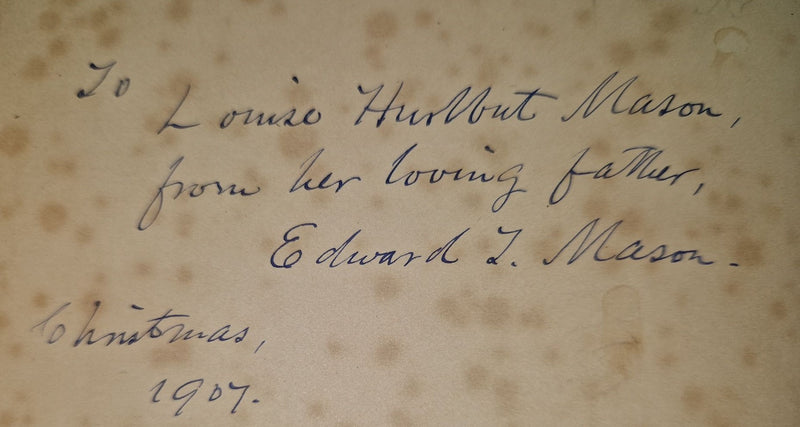 To
Louise Hurlbut Mason,
from her loving father,
Edward T. Mason.
Christmas,
1907.